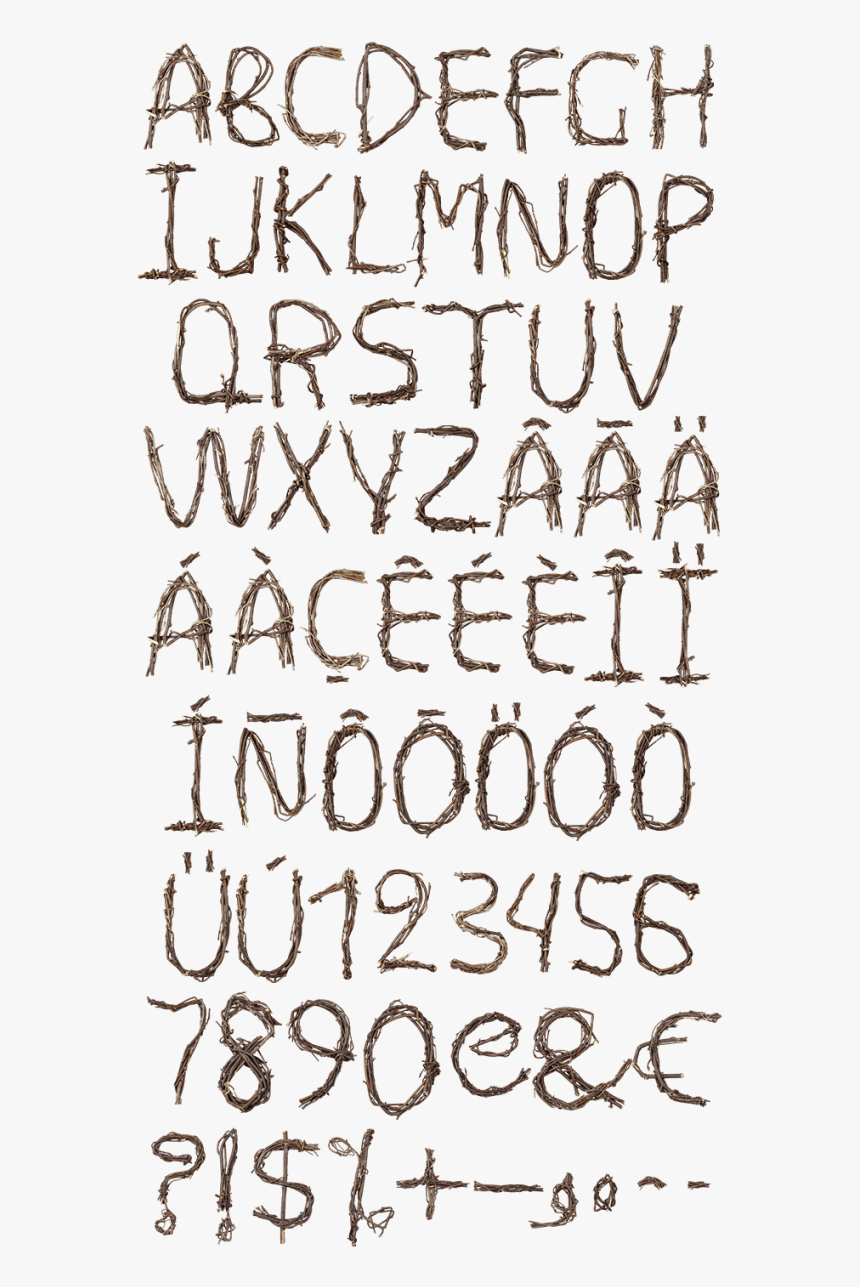 ABCDEFGH
IJKLMNOP
QRSTUV
WXYZÂÃÄ
ÁÀÇÊÉÈÎÏ
ÍÑÔÕÖÓÒ
ÜÚ123456
7890e&€
?!$%+-go~-